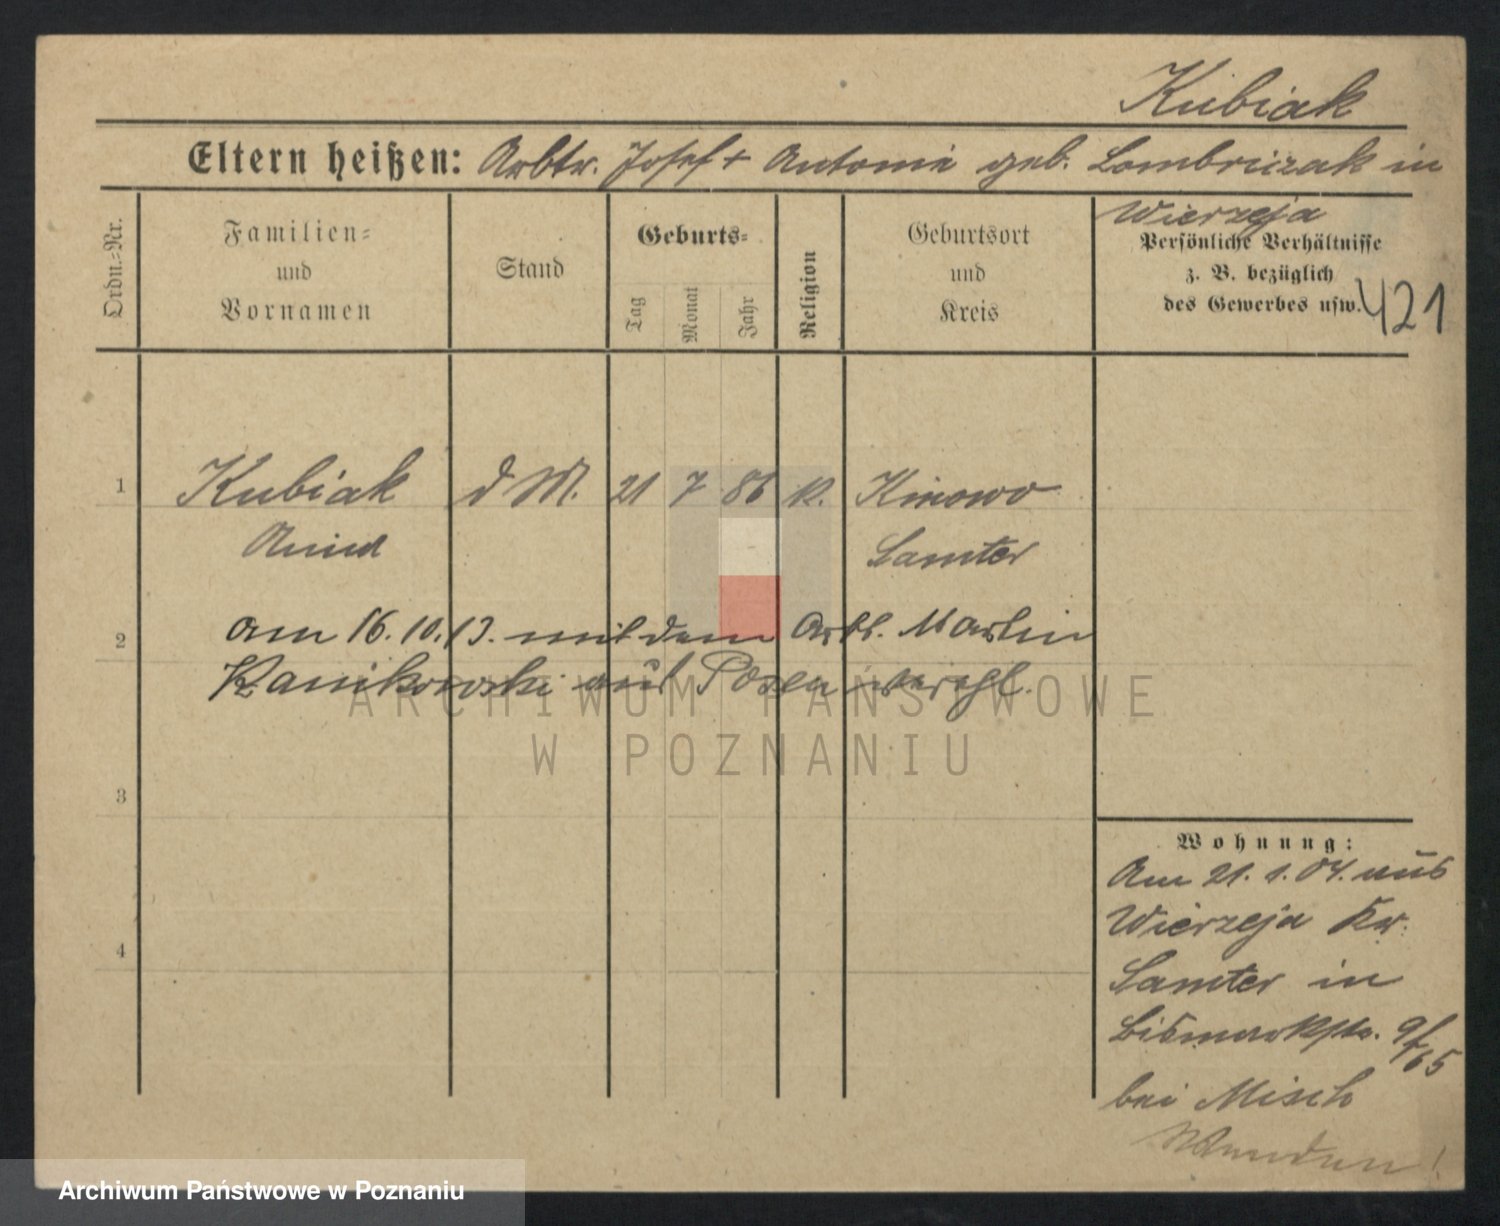 Kubiak
Eltern heißen: Arbtr. Josef + Antonie geb. Lombriczak in
Wierzeja
Ordn.-Nr.
Familien-
und
Vornamen
Stand
Geburts-
Tag
Monat
Jahr
Religion
Geburtsort
und
Kreis
Persönliche Verhältnisse
z. B. bezüglich
des Gewerbes usw.
421
1
Kubiak d M. 21 7 86 k. Kinowo
Anna Samter
2
am 16.10.13. mit dem Arbt. Martin
Kanikowski aus Posen verehl.
3
4
Wohnung:
Am 21.1.04. aus
Wierzeja Kr.
Samter in
Bismarkstr. 9/
65
bei Misch
ARCHIWUM PAŃSTWOWE
W POZNANIU
Archiwum Państwowe w Poznaniu